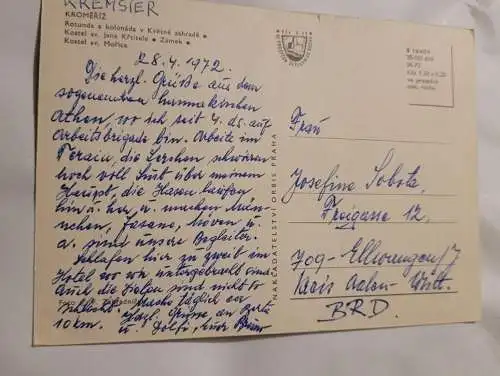 KREMSIER
KROMĚŘÍŽ
Rotunda a kolonáda v Květné zahradě •
Kostel sv. Jana Křtitele • Zámek •
Kostel sv. Mořice
28.4.1972
Die herzl. Grüße aus dem
sogenannten hannakischen
Athen, wo ich seit 4. ds. auf
Arbeitsbrigade bin. Arbeite im
Terain, die Lerchen schwirren
hoch voll Lust über meinem
Haupt, die Hasen laufen
hin u. her u. machen Männ-
chen, Fasane, Möven u.
a. sind unsre Begleiter.
Schlafen hier zu zweit im
Hotel wo wir untergebracht sind.
Auch die Felder sind nicht so
schlecht. täglich ca
10 km. Herzl. Grüsse, an
u. Dolfi, Eure
NAKLADATELSTVÍ ORBIS PRAHA
Frau
Josefine Sobota,
Freigasse 12,
709- Ellwangen/J
Kreis Aalen- Württ.
BRD.